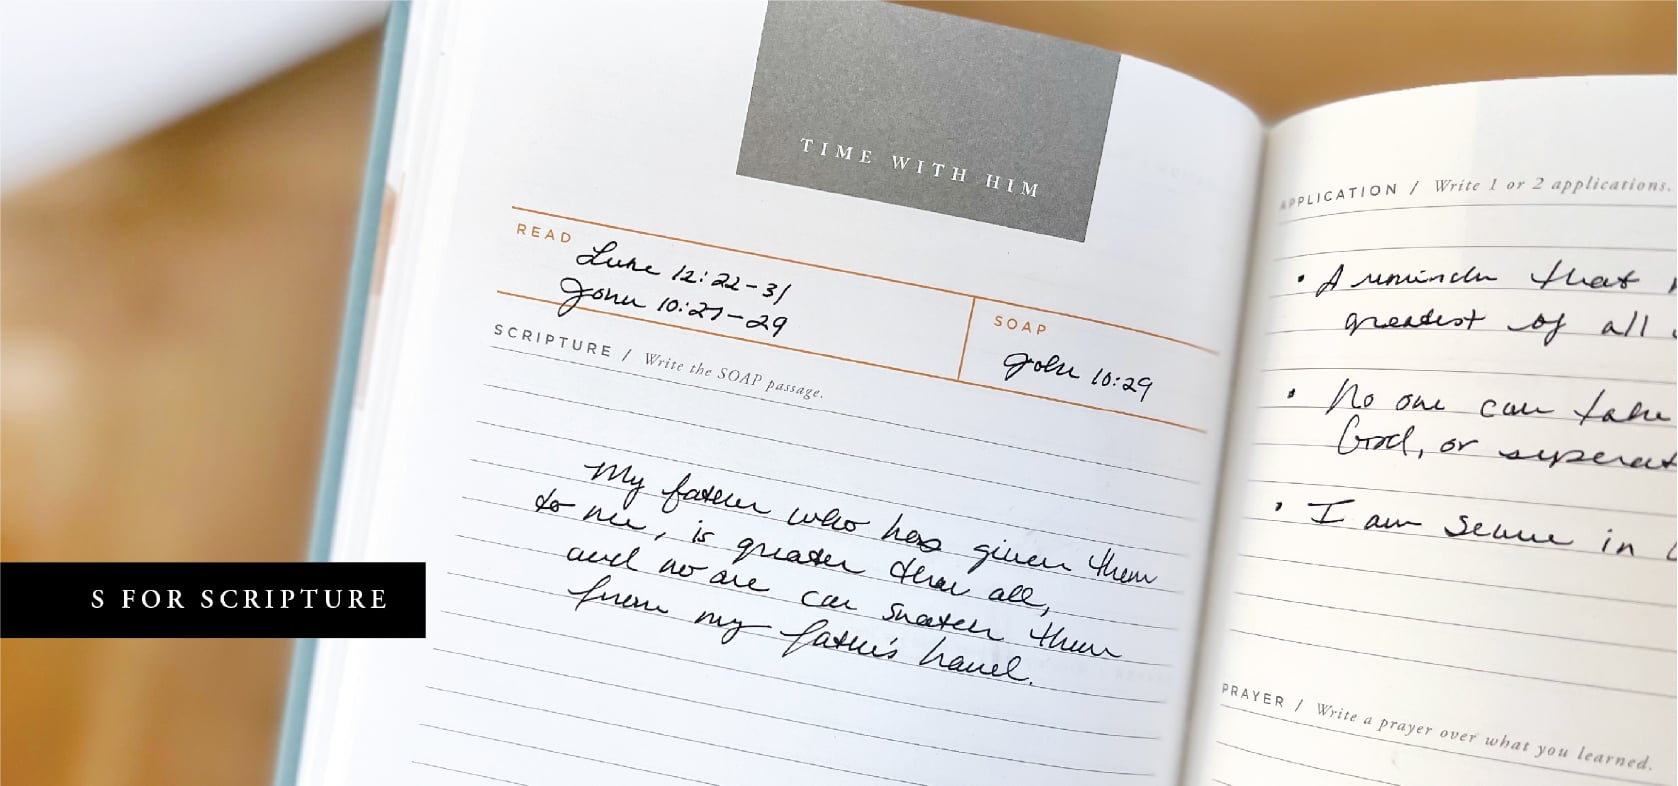 TIME WITH HIM
READ
Luke 12:22-31
John 10:27-29
SOAP
John 10:29
SCRIPTURE / Write the SOAP passage.
My father who has given them
to me, is greater than all,
and no one can snatch them
from my father's hand.
S FOR SCRIPTURE
APPLICATION / Write 1 or 2 applications.
• A reminder that
greatest of all
• No one can take
God, or seperat
• I am secure in
PRAYER / Write a prayer over what you learned.